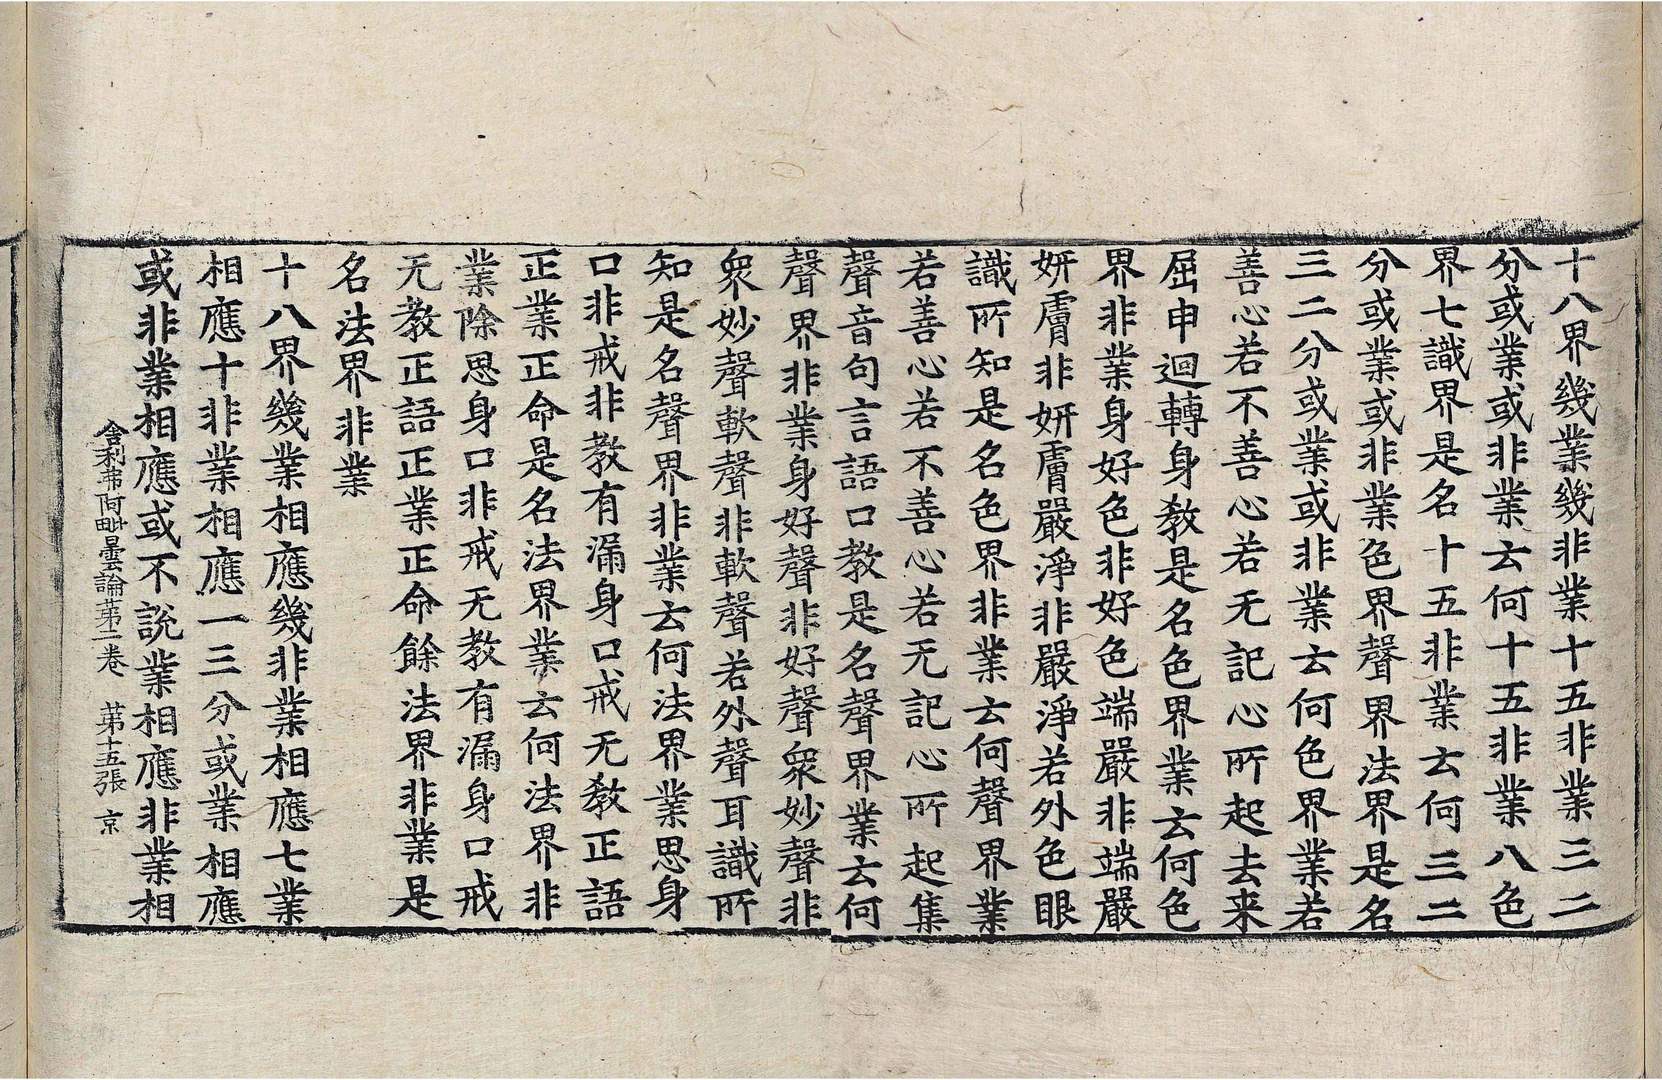 十八界幾業幾非業十五非業三二
分或業或非業云何十五非業八色
界七識界是名十五非業云何三二
分或業或非業色界聲界法界是名
三二分或業或非業云何色界業若
善心若不善心若无記心所起去来
屈申迴轉身教是名色界業云何色
界非業身好色非好色端嚴非端嚴
妍膚非妍膚嚴淨非嚴淨若外色眼
識所知是名色界非業云何聲界業
若善心若不善心若无記心所起集
聲音句言語口教是名聲界業云何
聲界非業身好聲非好聲衆妙聲非
衆妙聲軟聲非軟聲若外聲耳識所
知是名聲界非業云何法界業思身
口非戒非教有漏身口戒无教正語
正業正命是名法界業云何法界非
業除思身口非戒无教有漏身口戒
无教正語正業正命餘法界非業是
名法界非業
十八界幾業相應幾非業相應七業
相應十非業相應一三分或業相應
或非業相應或不說業相應非業相
舍利弗阿毗曇論苐二卷　苐十五張　京